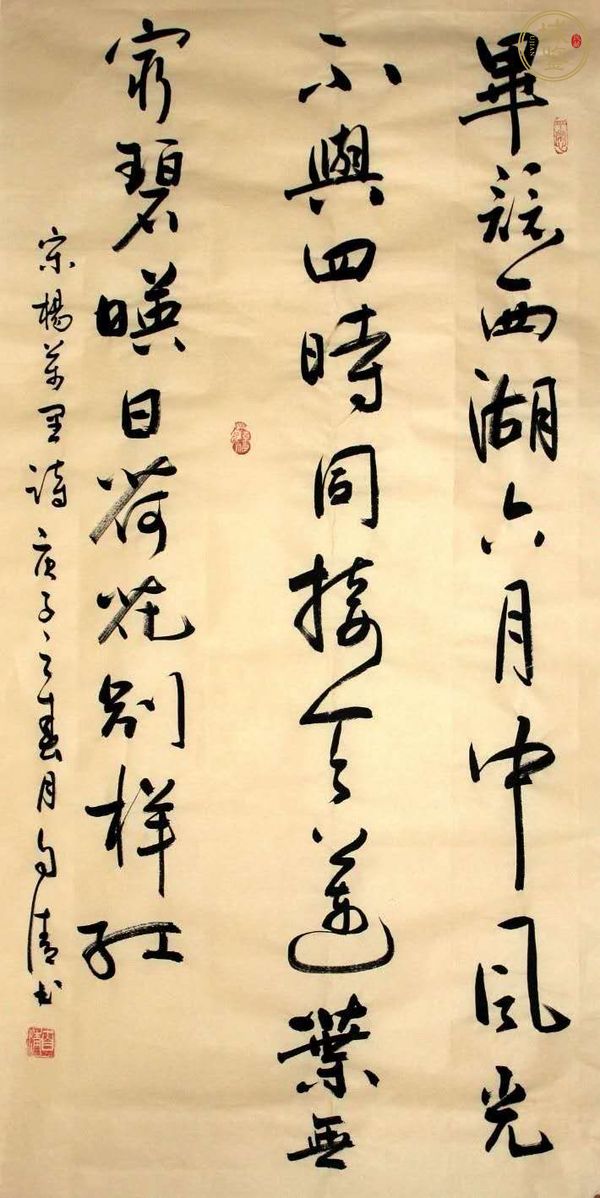 畢競西湖六月中風光
不與四時同接天蓮葉無
窮碧暎日荷花别样红
宋楊萬里詩庚子之春月自清书